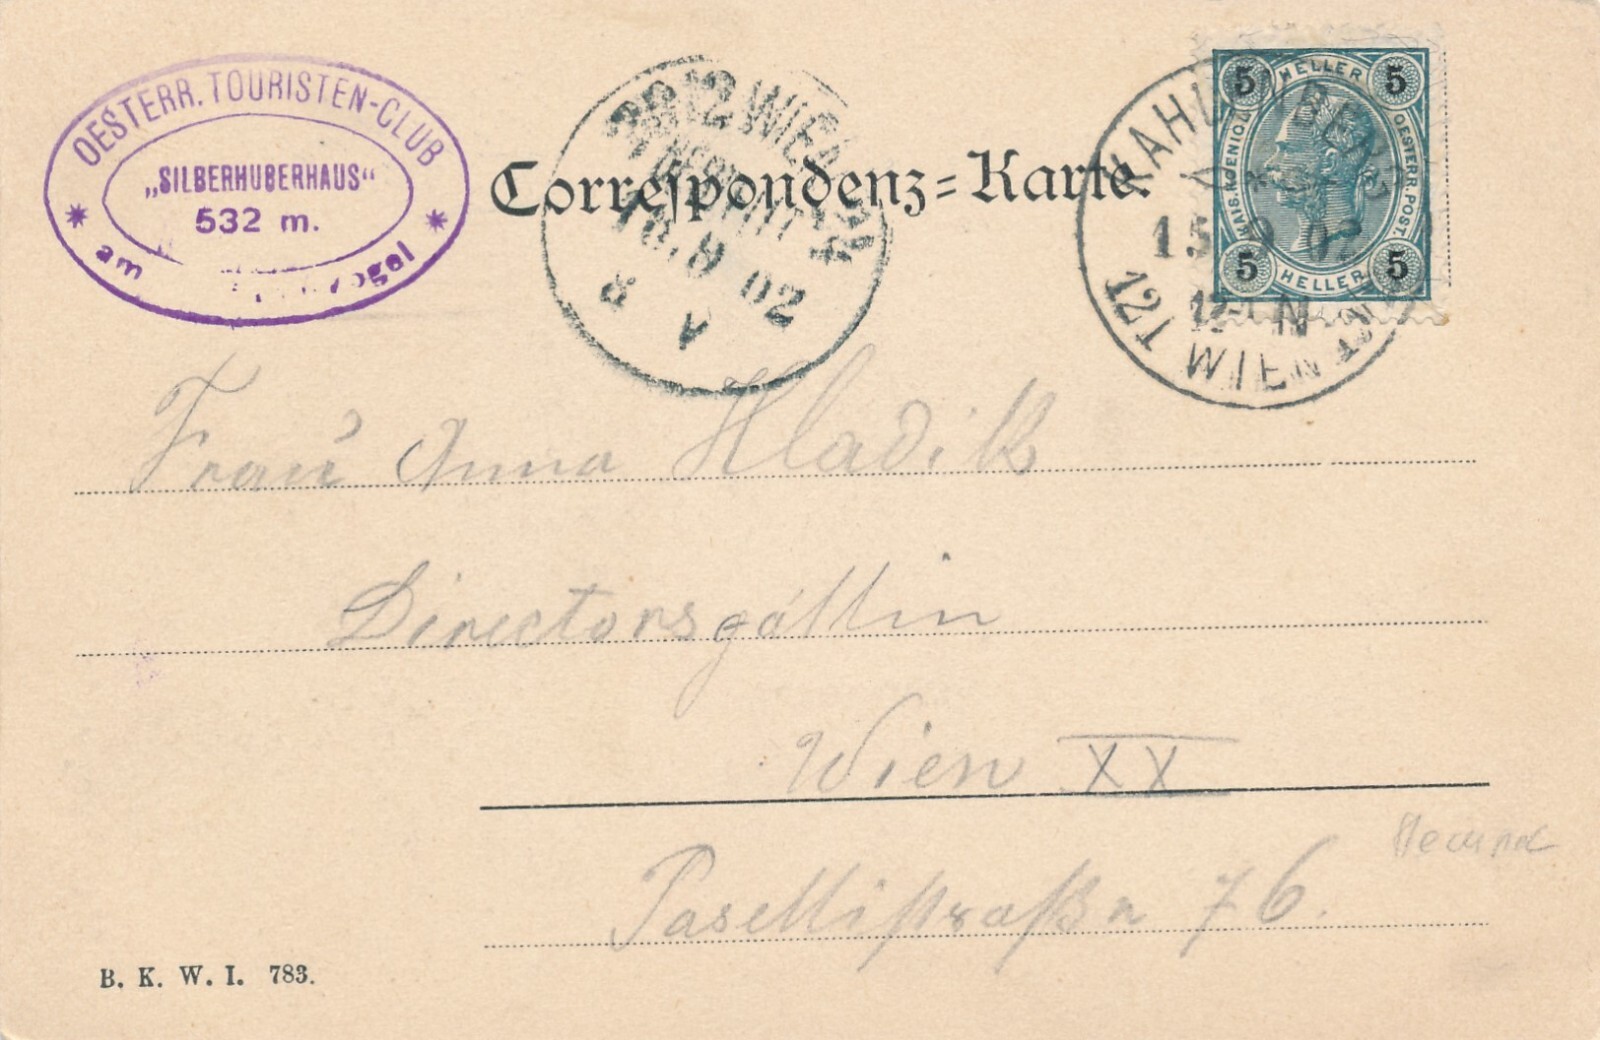 OESTERR. TOURISTEN-CLUB
„SILBERHUBERHAUS“
532 m.
am
Correspondenz=Karte.
WIEN
02
5 HELLER 5
KAIS. KOENIGL.
OESTERR. POST.
5 HELLER 5
KAHLENBERG
15 9 02
12-1 N
12/1 WIEN
Frau Anna Hladik
Directorsgattin
Wien XX
76.
B. K. W. I. 783.